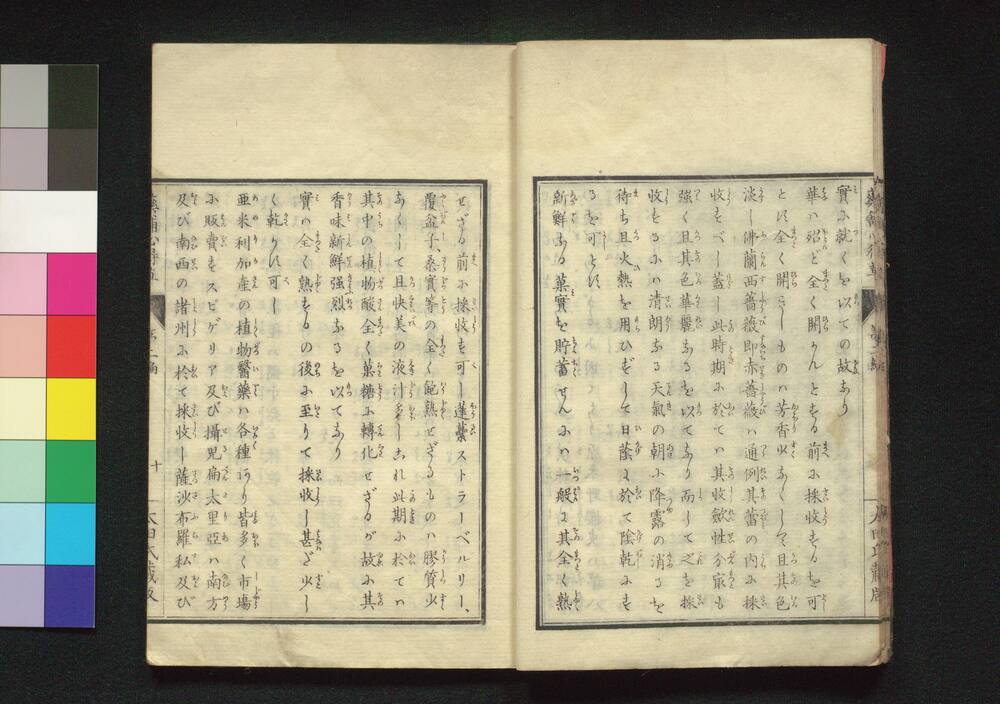 實ニ就くを以ての故なり
華ハ殆ど全く開かんとする前に採收するを可
とす全く開きしものハ芳香少なくして且其色
淡し佛蘭西薔薇即赤薔薇ハ通例其蕾の内に採
收すべし蓋し此時期に於てハ其收歛性分最も
強く且其色華麗なるを以てなり而して之を採
收するにハ清朗なる天氣の朝に降露の消るを
待ち且火熱を用ひずして日蔭に於て陰乾にす
るを可とす
新鮮なる菓實を貯蓄せんにハ一般に其全く熟
せざる前に採收す可し蓬虆ストラーベルリー、
覆盆子、桑實等の全く飽熟せざるものハ膠質少
なくして且快美の液汁多しこれ此期に於てハ
其中の植物酸全く菓糖に轉化せざるが故に其
香味新鮮强烈なるを以てなり
實ハ全く熟するの後に至りて採收し甚だ少し
く乾りす可し
亜米利加産の植物醫藥ハ各種あり皆多く市場
に販賣すスピゲリア及び攝児扁太里亞ハ南方
及び南西の諸州に於て採收し薩沙布羅私及び
十
太田氏藏版